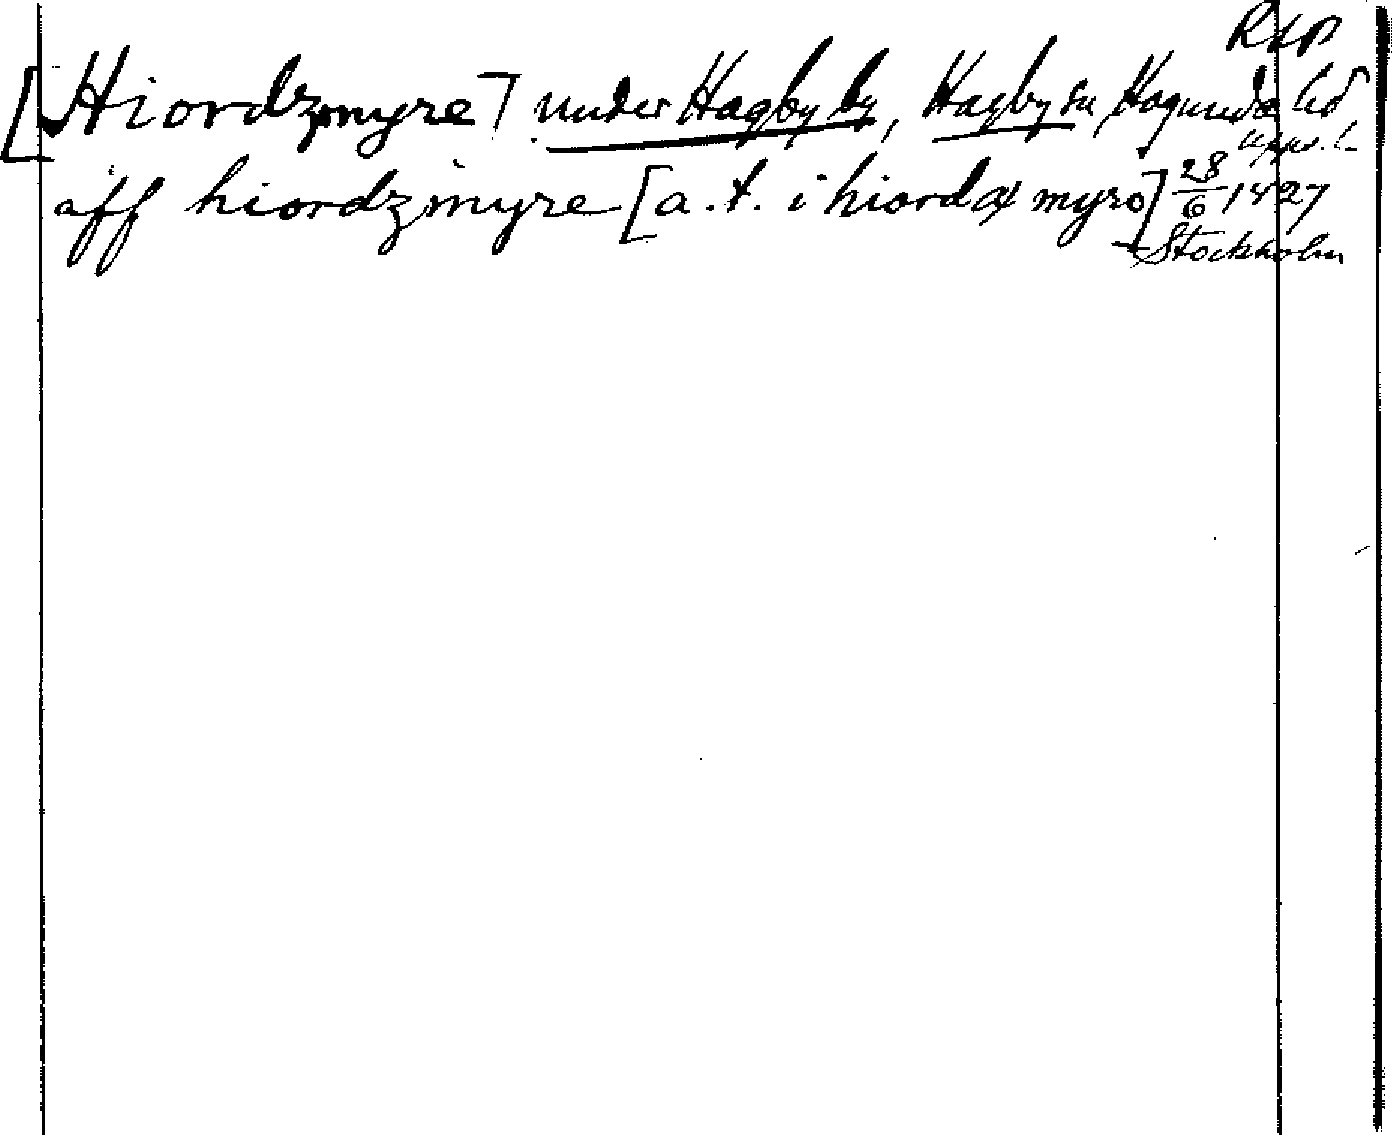 RAP
[Hiordzmyre] under Hagby by, Hagby sn Hagunda hd
Upps. l.
aff hiordzmyre [a.t. i hiordæ myro] 28/6 1427
Stockholm